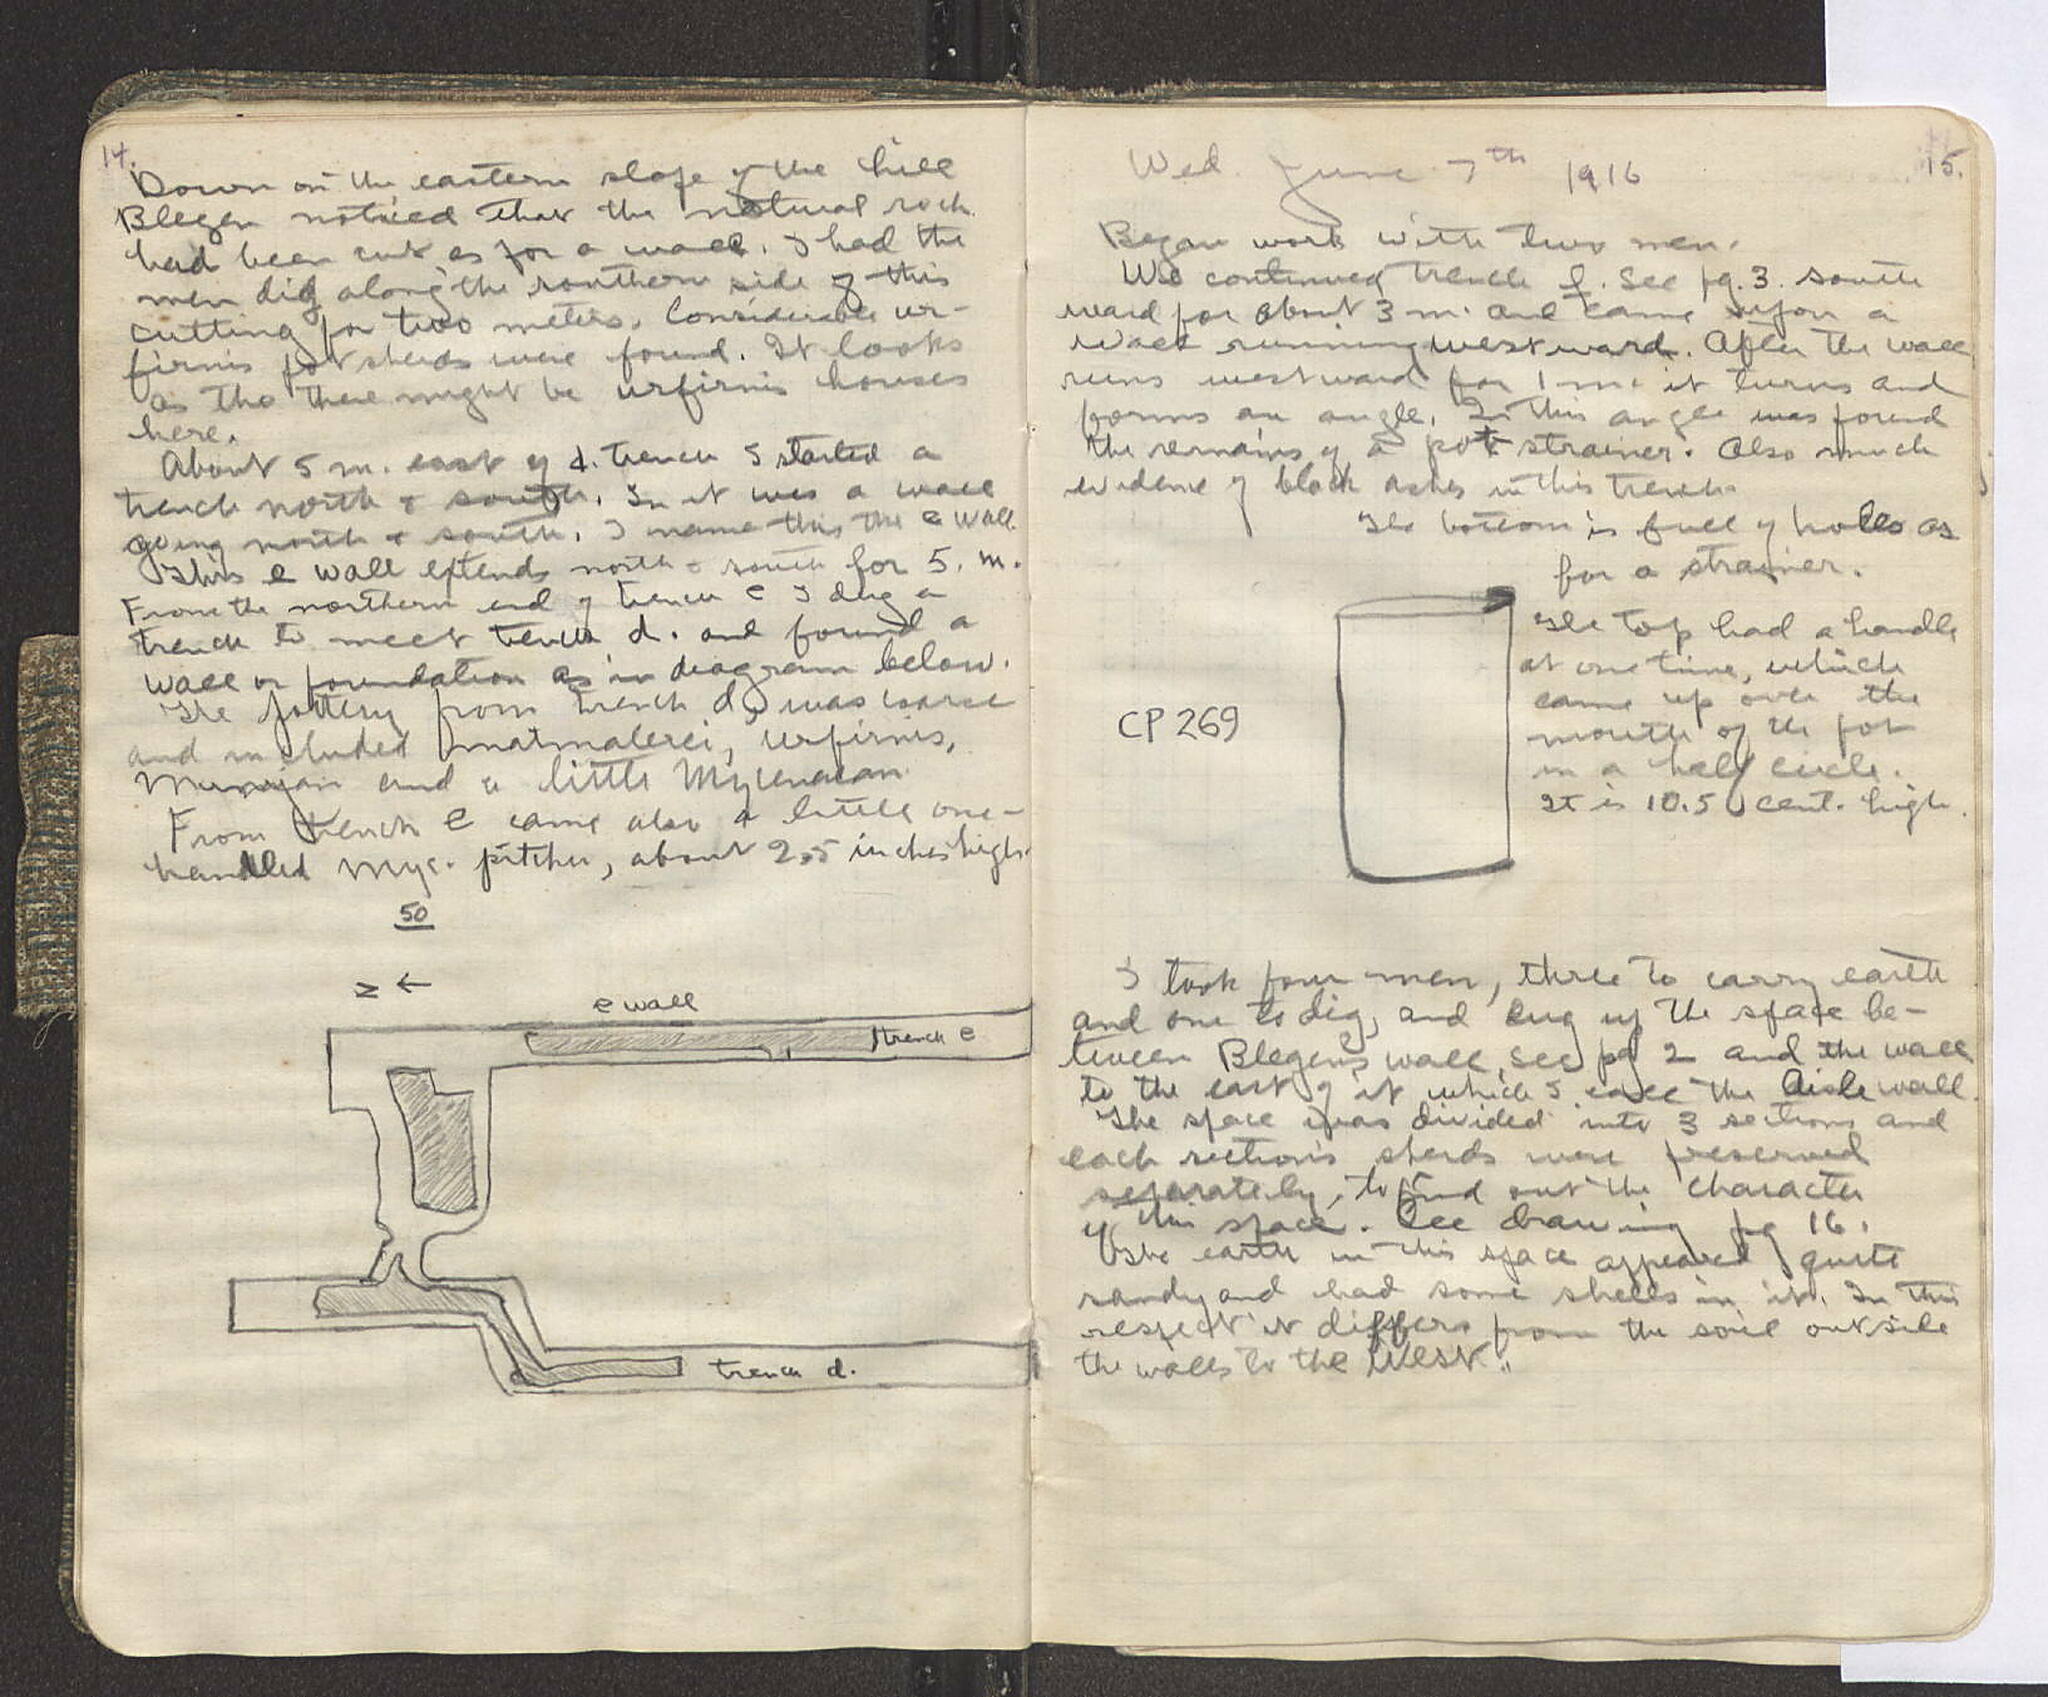 14.
Down on the eastern slope of the hill
Blegen noticed that the natural rock
had been cut as for a wall. I had the
men dig along the southern side of this
cutting for two meters. Considerable ur-
firnis pot sherds were found. It looks
as tho there might be urfirnis houses
here.
About 5 m. east of d. trench I started a
trench north & south. In it was a wall
going north & south. I name this the e wall.
This e wall extends north & south for 5. m.
From the northern end of trench e I dug a
trench to meet trench d. and found a
wall or foundation as in diagram below.
The pottery from trench d, was coarse
and included mattmalerei, urfirnis,
Minyan and a little Mycenaean
From trench e came also a little one-
handled Myc. pitcher, about 2.5 inches high.
50
N ←
e wall
trench e
trench d.
15.
Wed. June 7th 1916
Began work with two men.
We continued trench f. See pg. 3. south
ward for about 3 m. and came upon a
wall running westward. After the wall
runs westward for 1 m. it turns and
forms an angle. In this angle was found
the remains of a pot strainer. Also much
evidence of black ashes in this trench.
The bottom is full of holes as
for a strainer.
The top had a handle
at one time, which
came up over the
mouth of the pot
in a half circle.
It is 10.5 cent. high.
CP 269
I took four men, three to carry earth
and one to dig, and dug up the space be-
tween Blegen's wall, see pg 2 and the wall
to the east of it which I call the Aisle wall.
The space was divided into 3 sections and
each section's sherds were preserved
separately, to find out the character
of this space. See drawing pg 16.
The earth in this space appeared quite
sandy and had some shells in it. In this
respect it differs from the soil outside
the walls to the West.